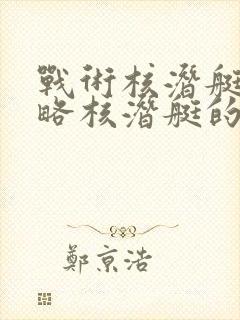 戰術核潛艇
略核潛艇的
鄭京浩